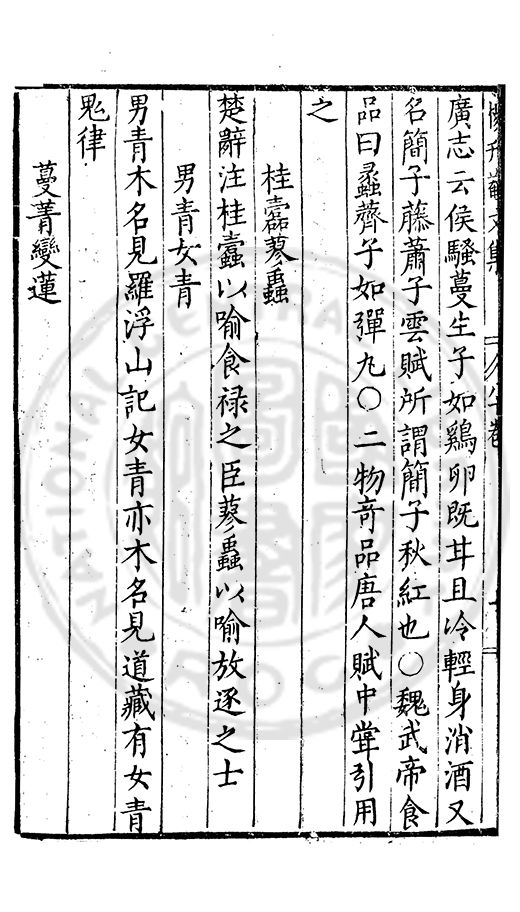 廣志云侯騷蔓生子如鷄卵既甘且冷輕身消酒又
名簡子藤蕭子雲賦所謂簡子秋紅也〇魏武帝食
品曰蠡薺子如彈九〇二物竒品唐人賦中甞引用
之
桂蠹蓼蟲
楚辭注桂蠹以喻食禄之臣蓼蟲以喻放逐之士
男青女青
男青木名見羅浮山記女青亦木名見道藏有女青
鬼律
蔓菁變蓮